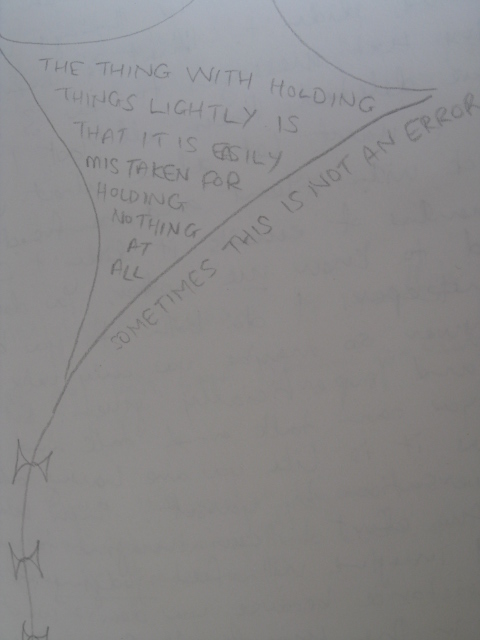 THE THING WITH HOLDING
THINGS LIGHTLY IS
THAT IT IS EASILY
MISTAKEN FOR
HOLDING
NOTHING
AT
ALL
SOMETIMES THIS IS NOT AN ERROR